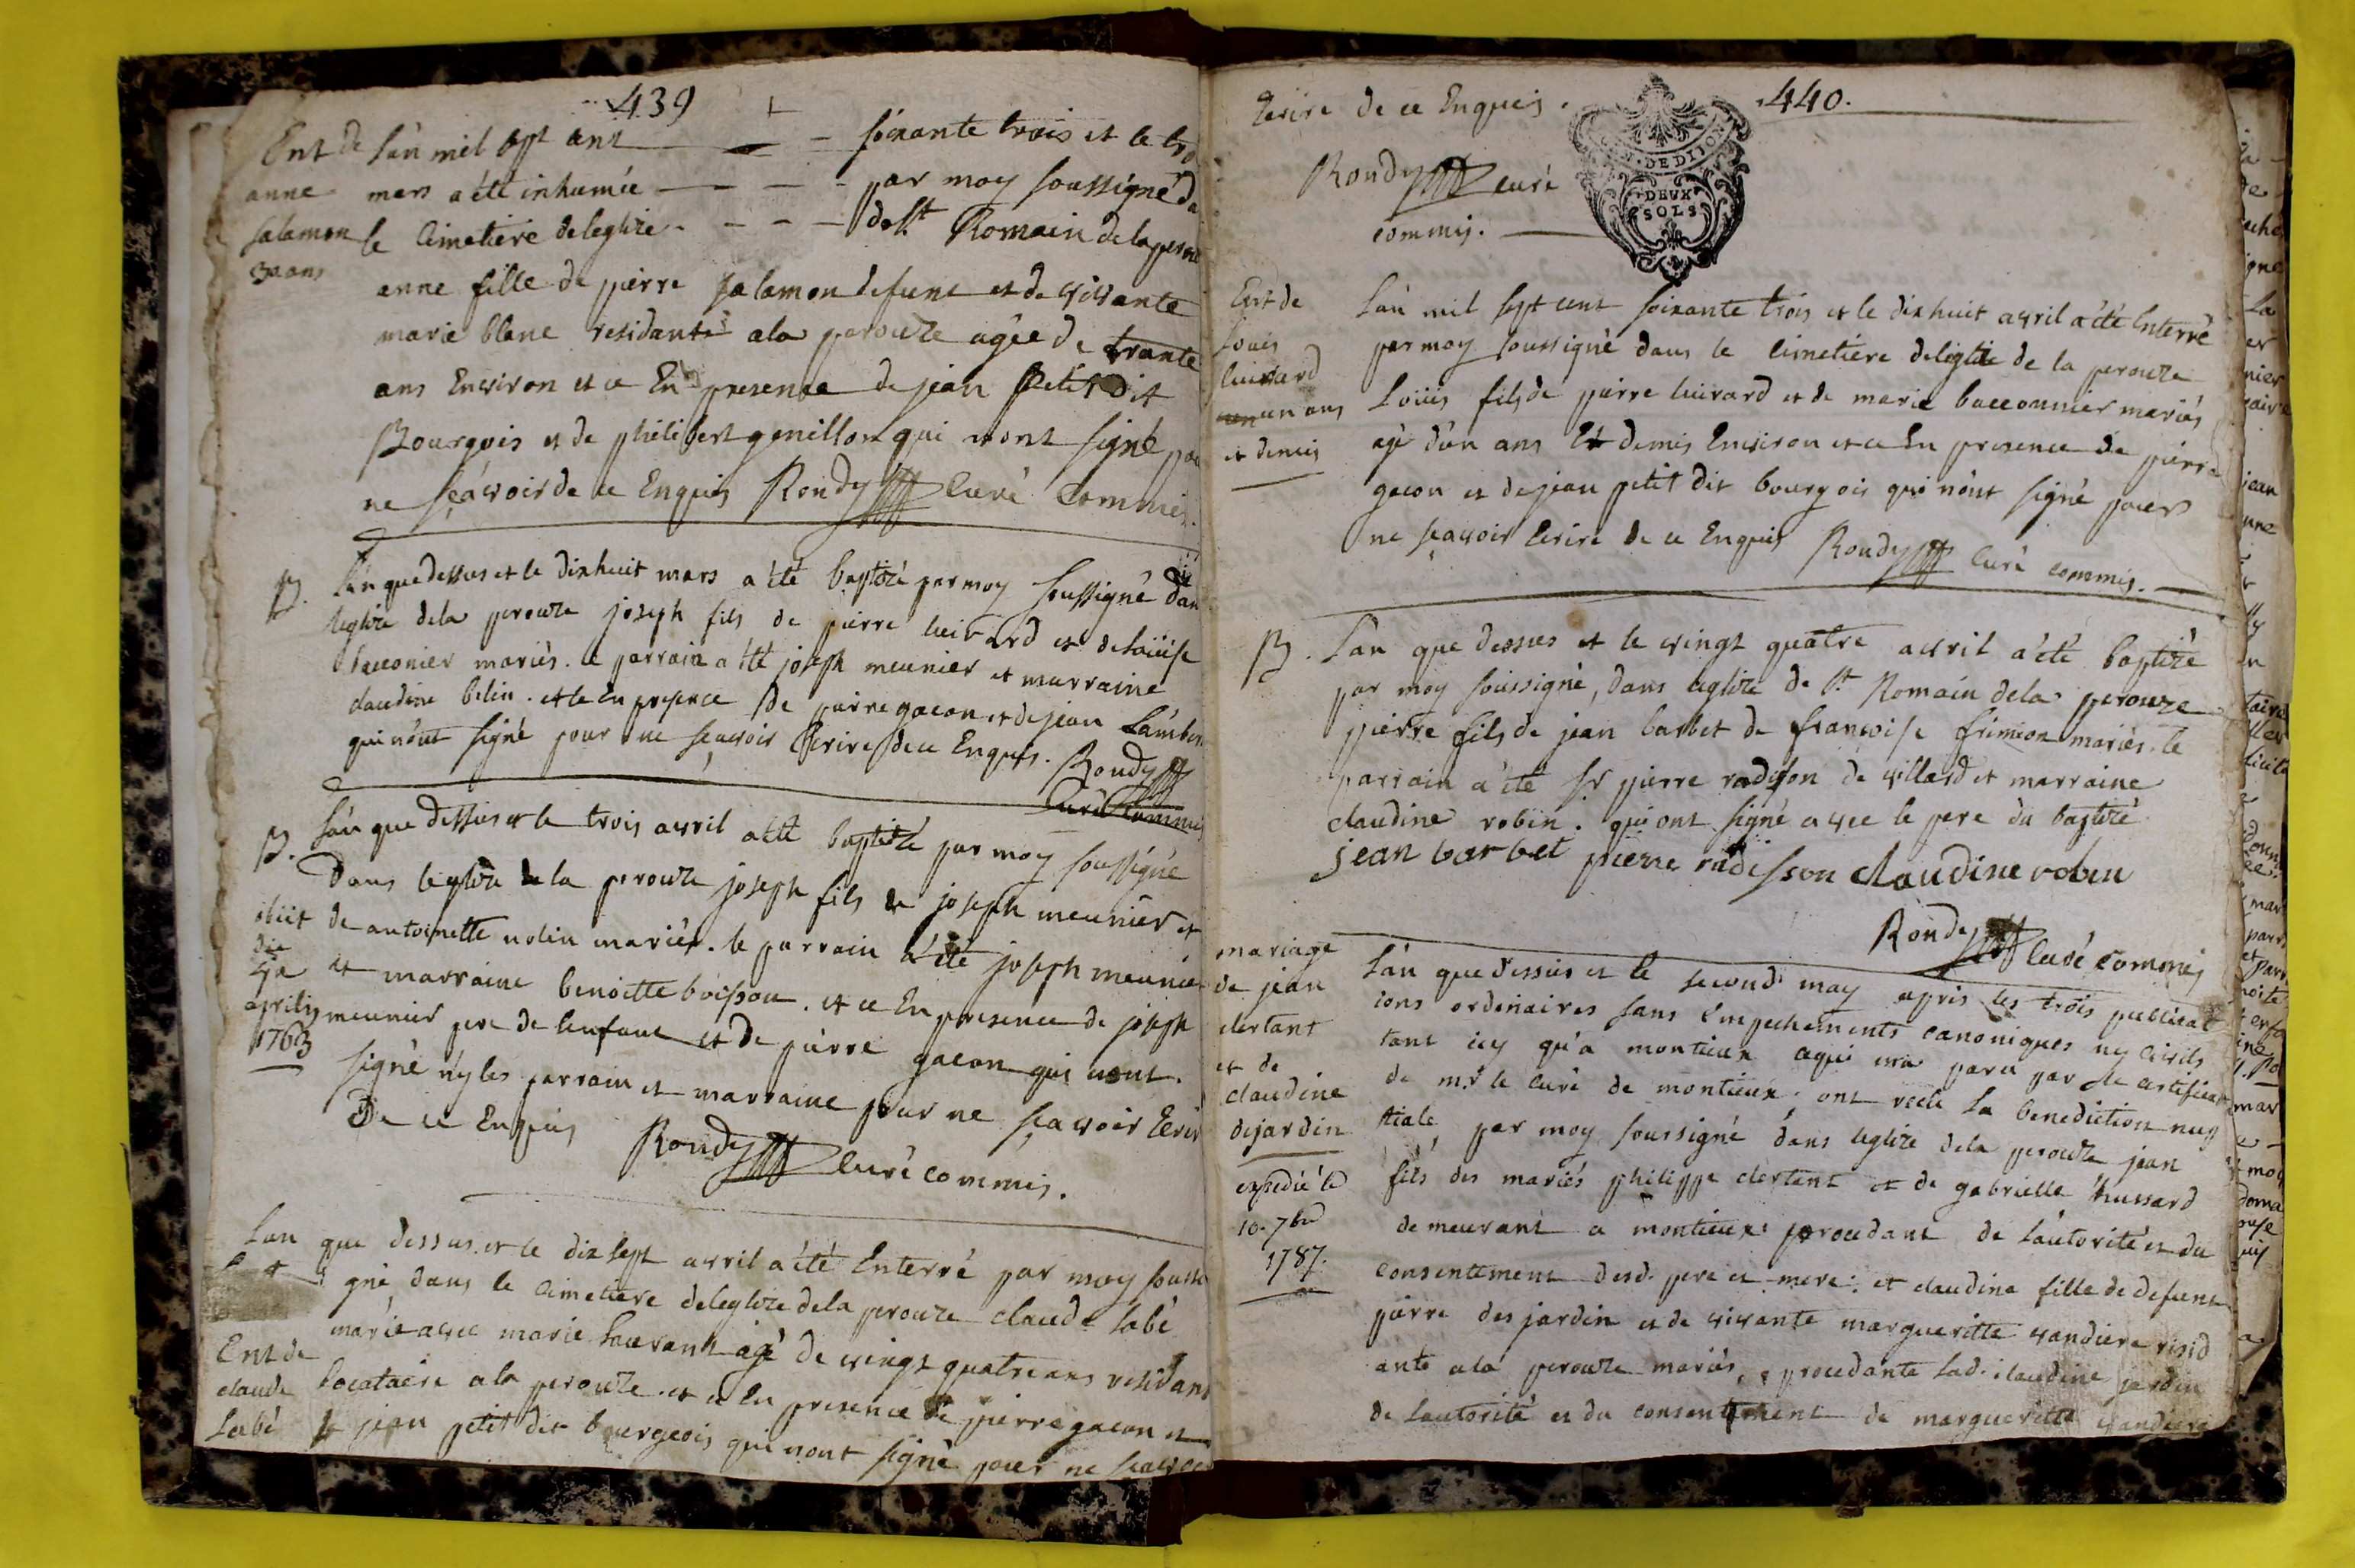 439
Ent de
anne
salamon
30 ans
L'an mil sept cent soixante trois et le
mars a été inhumée par moy soussigné
le Cimetiere deleglize de st Romain de la
anne fille de pierre salamon defunt et de vivante
marie blanc residante ala perouze agée de trante
ans Environ et ce En presence de jean Petit dit
Bourgois et de philibert genillon qui n'ont signé
ne sçavoir de ce Enquis Rondy Curé Commis.
B. L'an que dessus et le dixhuit mars a été baptizé par moy soussigné
leglize dela perouze joseph fils de pierre luivard et delouise
bacconier mariés. le parrain a été joseph meunier et marraine
claudine belin. et ce En presence de pierre gacon et de jean Lambert
qui n'ont signé pour ne sçavoir Ecrire de ce Enquis. Rondy
Curé Commis
B. L'an que dessus et le trois avril a été baptizé par moy soussigné
Dans leglize de la perouze joseph fils de joseph meunier et
de antoinette nolin mariés. le parrain a été joseph meunier
et marraine benoitte boisson. et ce En presence de joseph
meunier pere de lenfant et de pierre gacon qui n'ont
signé ny les parrain et marraine pour ne sçavoir Ecrire
De ce Enquis Rondy Curé commis.
obiit
die
aprilis
1763
L'an que dessus. et le dix sept avril a été Enterré par moy
gné, dans le Cimetiere deleglize dela perouze claude labé
marié avec marie Laurant agé de vingt quatre ans residant
locataire ala perouze. et ce En presence de pierre gacon et
jean petit dit bourgeois qui n'ont signé pour ne
Ent de
claude
Labé
440.
Ecrire de ce Enquis.
Rondy curé
commis.
DE DIJON
DEUX
SOLS
Ent de
Louis
luivard
un ans
et demis
L'an mil sept cent soixante trois et le dix huit avril a été Enterré
par moy soussigné dans le cimetiere deleglize de la perouze
Louis fils de pierre luivard et de marie bacconnier mariés
agé d'un ans Et demis Environ et ce En presence de pierre
gacon et de jean petit dit bourgois qui n'ont signé pour
ne sçavoir Ecrire de ce Enquis Rondy Curé commis.
B. L'an que dessus et le vingt quatre avril a été baptizé
par moy soussigné, dans leglize de st. Romain dela perouze
pierre fils de jean barbet de françoise frimion mariés. le
parrain a été sr pierre radisson de villard et marraine
claudine robin. qui ont signé avec le pere du baptizé
jean barbet pierre radisson claudine robin
Rondy Curé commis
mariage
de jean
clertant
et de
claudine
dejardin
expedié le
10. 7bre
1787.
L'an que dessus et le second may apris les trois publicat
ions ordinaires sans Empechements canoniques ny Civils
tant icy qu'a montieux aqui ma paru par le certificat
de mr. le curé de montieux; ont recu la benediction nup
tiale, par moy soussigné dans leglize dela perouze jean
fils des mariés philippe clertant et de gabrielle hussard
demeurant a montieux procedant de l'autorité et du
consentement desd. pere et mere: et claudine fille de defunt
pierre des jardin et de vivante margueritte vandiere resid
ante ala perouze mariés, procedante lad. claudine jardin
de lautorité et du consentement de margueritte vandiere